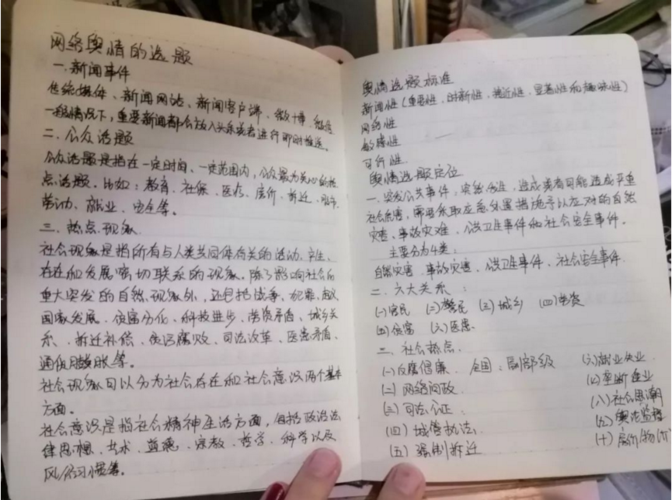 网络舆情的选题
一.新闻事件
传统媒体、新闻网站、新闻客户端、微博、微信
一般情况下,重要新闻都会放入头条或者进行即时推送。
二.公众话题
公众话题是指在一定时间、一定范围内,公众最为关心的热
点话题。比如:教育、社保、医疗、房价、拆迁、
劳动、就业、安全等。
三.热点现象
社会现象是指所有与人类共同体有关的活动、产生、
存在和发展密切联系的现象。除了影响社会的
重大突发的自然现象外,还包括战争、犯罪、政权
国家发展、贫富分化、科技进步、劳资矛盾、城乡关
系、拆迁补偿、贪污腐败、司法改革、医患矛盾、
通货膨胀等。
社会现象可以分为社会存在和社会意识两个基本
方面。
社会意识是指社会精神生活方面,包括政治法
律思想、艺术、道德、宗教、哲学、科学以及
风俗习惯等。
舆情选题标准
新闻性(重要性、时新性、接近性、显著性和趣味性)
网络性
敏感性
可行性
舆情选题定位
一.突发公共事件,突然发生,造成或者可能造成严重
社会危害,需要采取应急处置措施予以应对的自然
灾害、事故灾难、公共卫生事件和社会安全事件。
主要分为4类:
自然灾害、事故灾害、公共卫生事件、社会安全事件
二.六大关系:
(一)官民 (二)警民 (三)城乡 (四)劳资
(五)贫富 (六)医患
三.社会热点
(一)反腐倡廉 全国:副部级 (六)就业失业
(二)网络问政 (七)垄断企业
(三)司法公正: (八)社会思潮
(四)城管执法: (九)舆论监督
(五)强制拆迁 (十)房价/物价